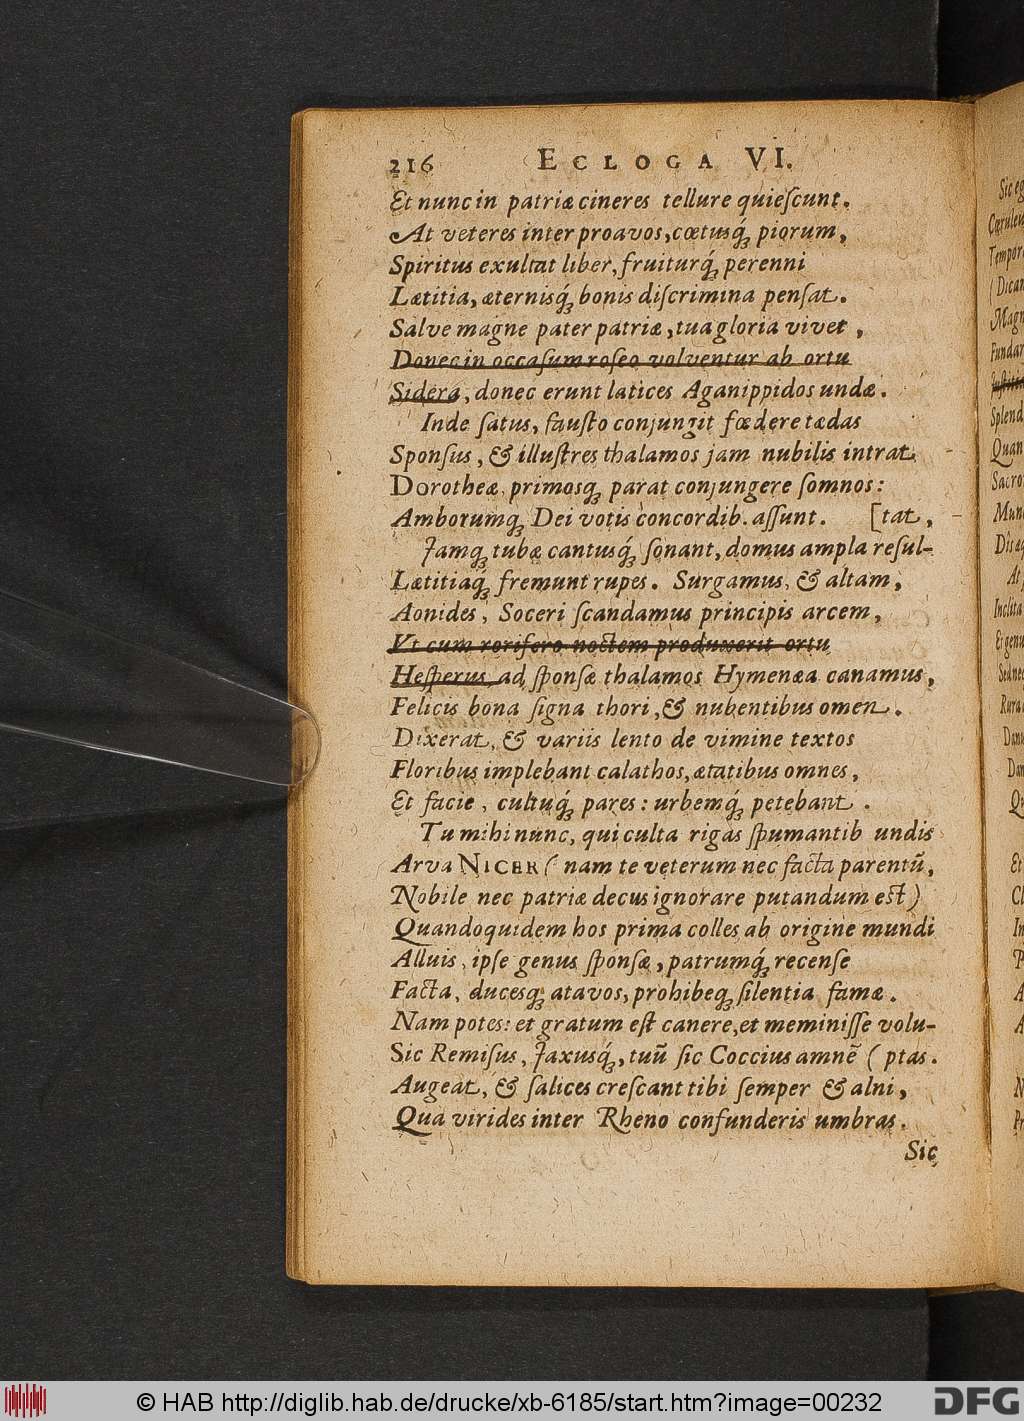 216 ECLOGA VI.
Et nunc in patriæ cineres tellure quieſcunt.
At veteres inter proavos, cœtusq́; piorum,
Spiritus exultat liber, fruiturq́; perenni
Lætitia, æternisq́; bonis diſcrimina penſat.
Salve magne pater patriæ, tua gloria vivet,
Donec in occaſum roſeo volventur ab ortu
Sidera, donec erunt latices Aganippidos undæ.
Inde ſatus, fauſto conjungit fœdere tædas
Sponſus, & illuſtres thalamos jam nubilis intrat
Dorotheæ, primosq; parat conjungere ſomnos:
Amborumq; Dei votis concordib. aſſunt. [tat,
Jamq; tubæ cantusq́; ſonant, domus ampla reſul-
Lætitiaq́; fremunt rupes. Surgamus, & altam,
Aonides, Soceri ſcandamus principis arcem,
Vt cum rorifero noctem produxerit ortu
Heſperus, ad ſponſæ thalamos Hymenæa canamus,
Felicis bona ſigna thori, & nubentibus omen.
Dixerat, & variis lento de vimine textos
Floribus implebant calathos, ætatibus omnes,
Et facie, cultuq́; pares: urbemq́; petebant.
Tu mihi nunc, qui culta rigas ſpumantib undis
Arva NICER ( nam te veterum nec facta parentũ,
Nobile nec patriæ decus ignorare putandum eſt)
Quandoquidem hos prima colles ab origine mundi
Alluis, ipſe genus ſponſæ, patrumq́; recenſe
Facta, ducesq; atavos, prohibeq; ſilentia famæ.
Nam potes: et gratum eſt canere, et meminiſſe volu-
Sic Remiſus, Jaxusq́;, tuũ ſic Coccius amnẽ ( ptas.
Augeat, & ſalices creſcant tibi ſemper & alni,
Qua virides inter Rheno confunderis umbras.
Sic
© HAB http://diglib.hab.de/drucke/xb-6185/start.htm?image=00232
DFG